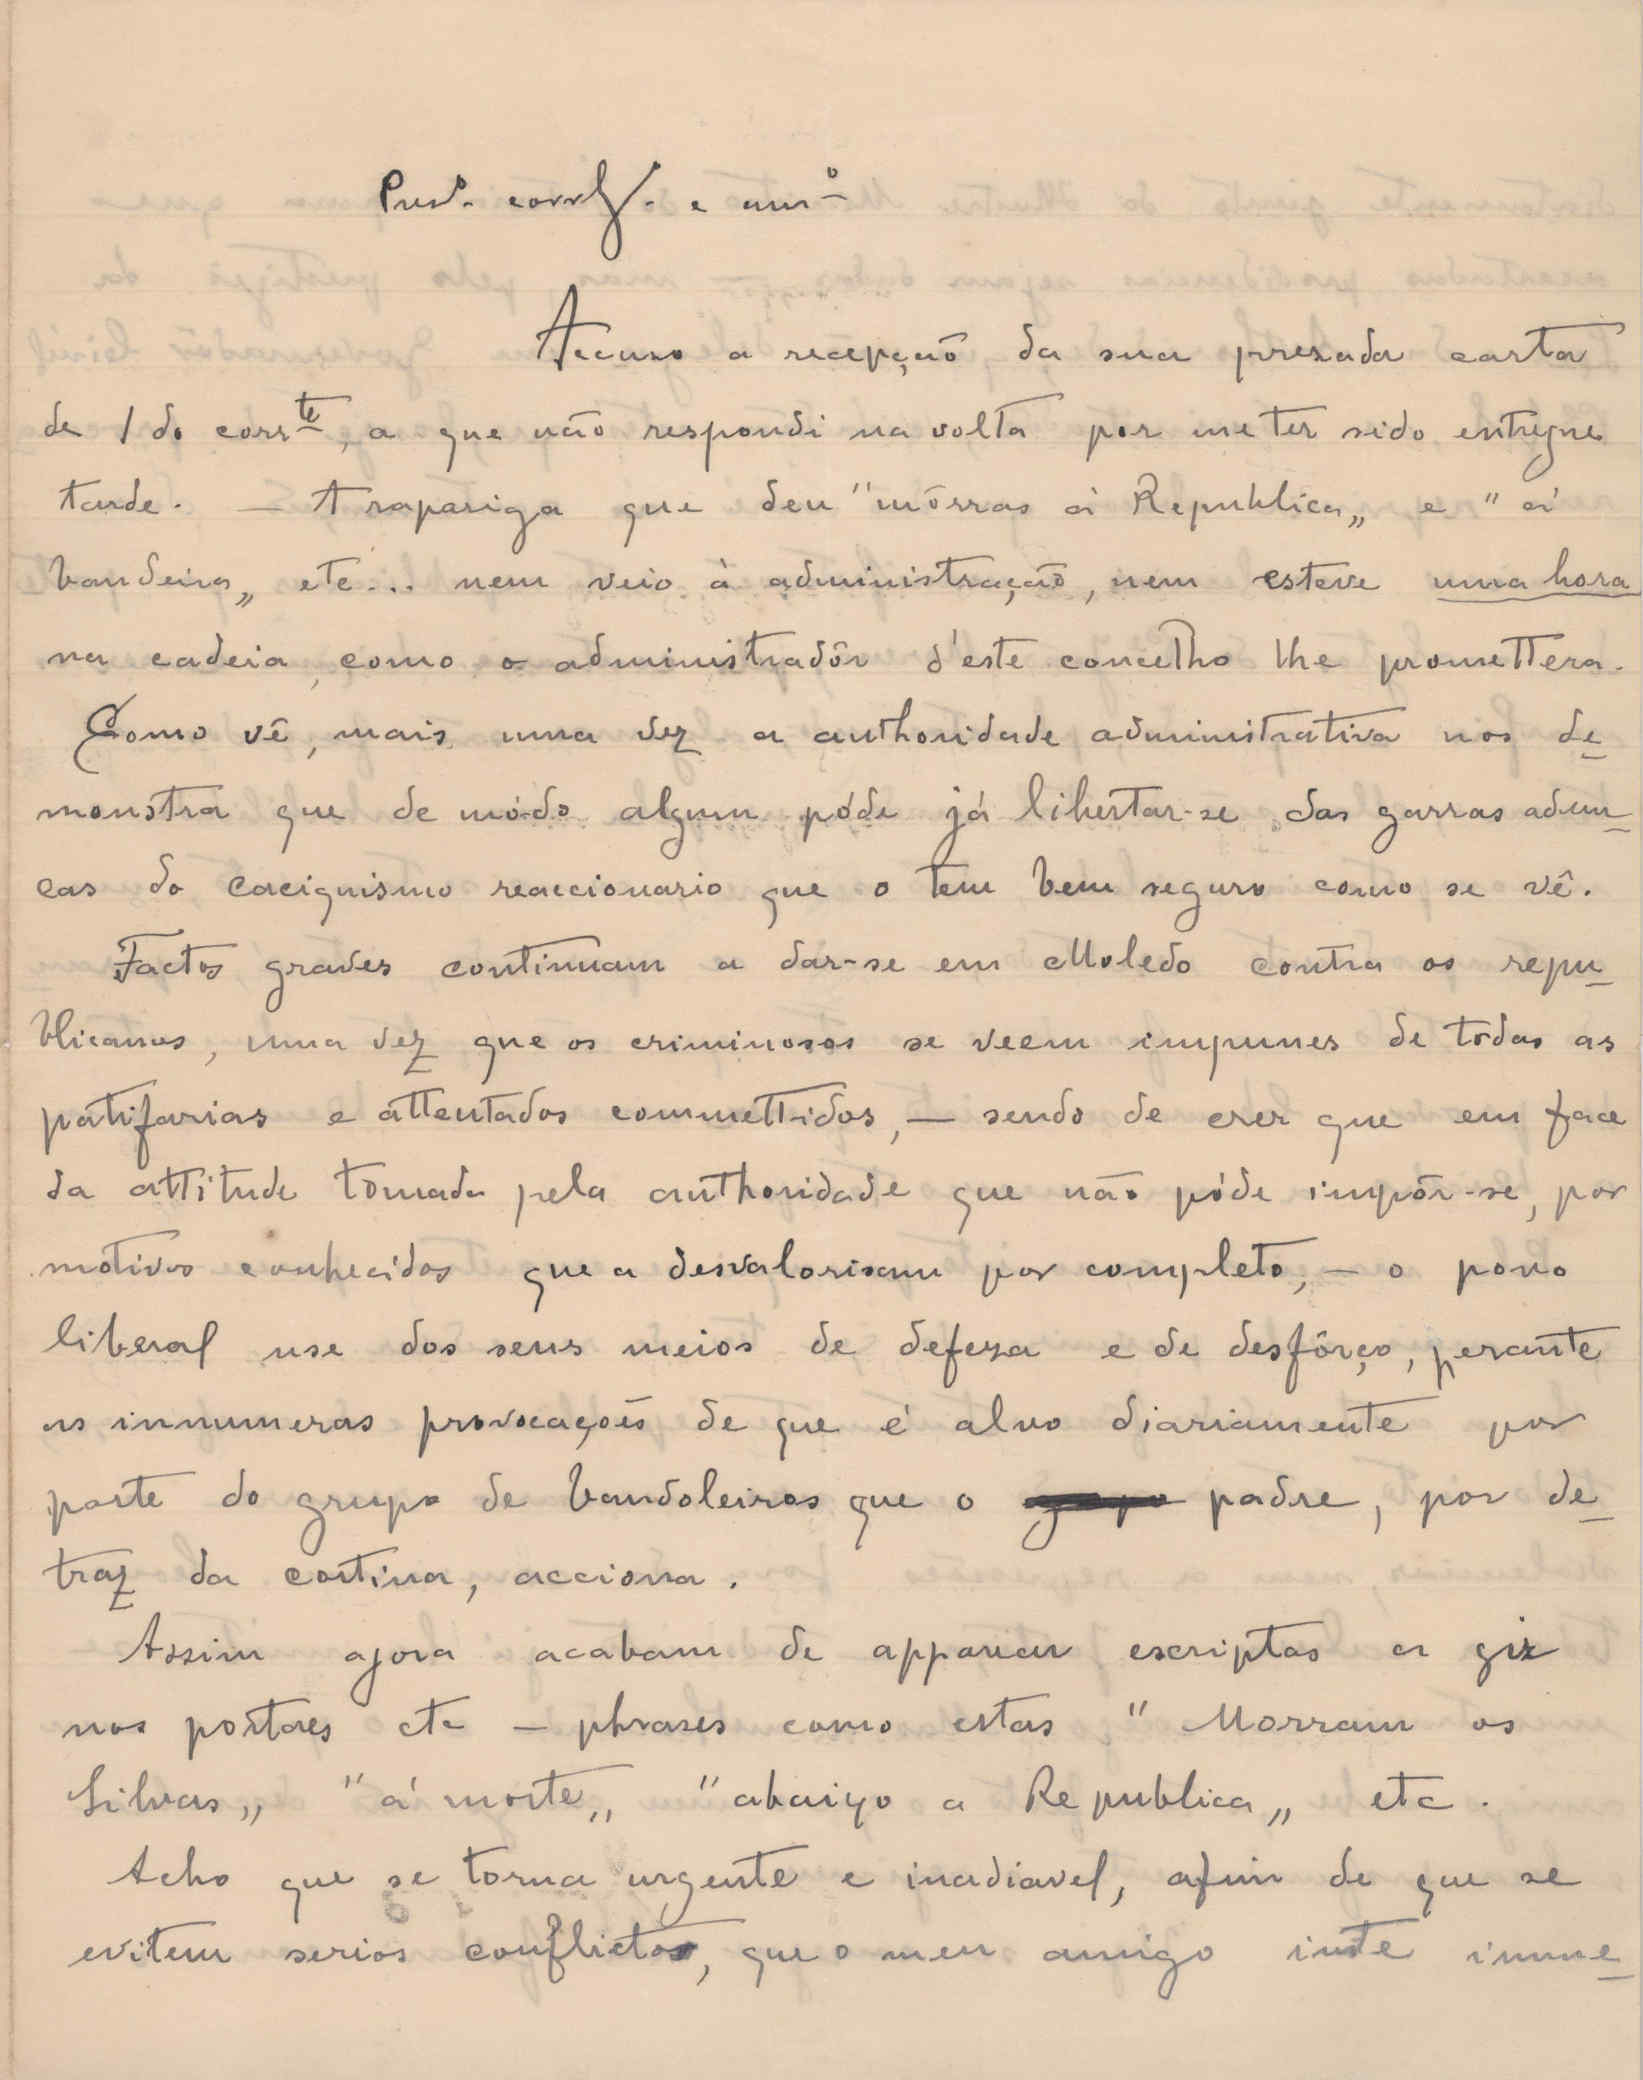 Presº. corrlgº. e amº
Accuso a recepção da sua presada carta
de 1 do corrte, a que não respondi na volta por me ter sido entregue
tarde. — A rapariga que deu "môrras á Republica„ e "á
bandeira„ etc... nem veio à administração, nem esteve uma hora
na cadeia, como o administradôr d'este concelho lhe promettera.
Como vê, mais uma vez a authoridade administrativa nos de
monstra que de módo algum póde já libertar-se das garras adun
cas do caciquismo reaccionario que o tem bem seguro como se vê.
Factos graves continuam a dar-se em Moledo contra os repu
blicanos, uma vez que os criminosos se veem impunes de todas as
patifarias e attentados commettidos, — sendo de crer que em face
da attitude tomada pela authoridade que não póde impôr-se, por
motivos conhecidos que a desvalorisam por completo, — o povo
liberal use dos seus meios de defeza e de desfôrço, perante
as innumeras provocações de que é alvo diariamente por
parte do grupo de bandoleiros que o padre, por de
traz da cortina, acciona.
Assim agora acabam de apparecer escriptas a giz
nos portaes etc — phrases como estas "Morram os
Silvas„ "á morte„ "abaixo a Republica„ etc.
Acho que se torna urgente e inadiavel, afim de que se
evitem serios conflictos, que o meu amigo inste imme